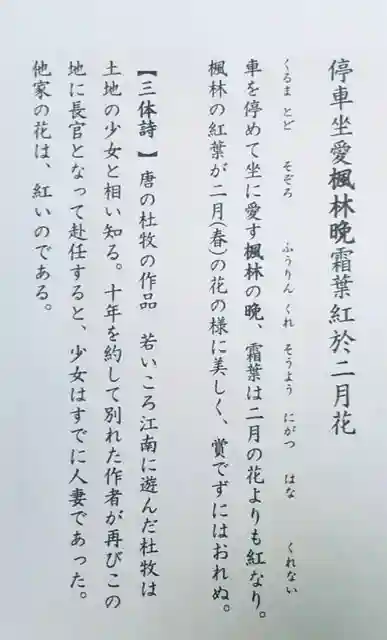 停車坐愛楓林晩霜葉紅於二月花
くるま とど そぞろ ふうりん くれ そうよう にがつ はな くれない
車を停めて坐に愛す楓林の晩、霜葉は二月の花よりも紅なり。
楓林の紅葉が二月(春)の花の様に美しく、賞でずにはおれぬ。
【三体詩】唐の杜牧の作品 若いころ江南に遊んだ杜牧は
土地の少女と相い知る。十年を約して別れた作者が再びこの
地に長官となって赴任すると、少女はすでに人妻であった。
他家の花は、紅いのである。